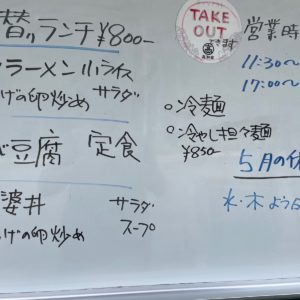 替ランチ¥800-
ラーメン 小ライス
げの卵炒め サラダ
豆腐 定食
婆丼 サラダ
げの卵炒め スープ
TAKE OUT
できます
営業時
11:30〜
17:00〜
○冷麺
○冷やし担々麺
¥850-
5月の休
水・木よう日